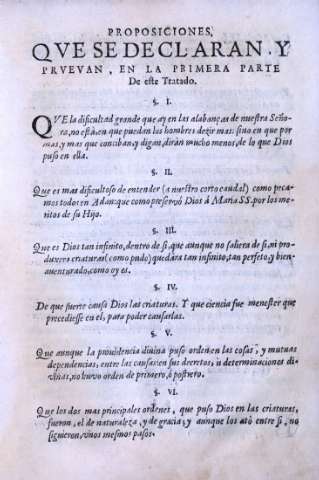 PROPOSICIONES,
QVE SE DECLARAN, Y
PRVEVAN, EN LA PRIMERA PARTE
De este Tratado.
§. I.
QVE la dificultad grande que ay en las alabanças de nuestra Seño-
ra, no està en que puedan los hombres dezir mas: sino en que por
mas, y mas que conciban, y digan, diràn mucho menos, de lo que Dios
puso en ella.
§. II.
Que es mas dificultoso de entender (a nuestro corto caudal) como peca-
mos todos en Adan: que como preservò Dios à Maria SS. por los me-
ritos de su Hijo.
§. III.
Que es Dios tan infinito, dentro de si, que aunque no saliera de si, ni pro-
duxera criaturas (como pudo) quedàra tan infinito, tan perfeto, y bien-
aventurado, como oy es.
§. IV.
De que suerte causò Dios las criaturas. Y que ciencia fue menester que
precediesse en el, para poder causarlas.
§. V.
Que aunque la providencia divina puso orden en las cosas, y mutuas
dependencias, entre las causas en sus decretos, ù determinaciones di-
vinas, no huvo orden de primero, ò postrero.
§. VI.
Que los dos mas principales ordenes, que puso Dios en las criaturas,
fueron, el de naturaleza, y de gracia; y aunque los atò entre si, no
siguieron, vnos mesmos pasos.